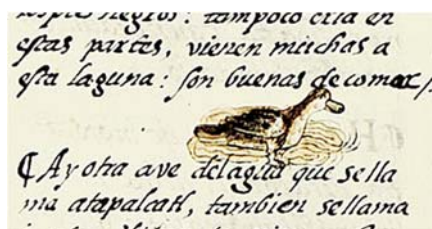 los pies negros: tampoco cria en
estas partes, vienen muchas a
esta laguna: son buenas de comer
¶ Ay otra ave del agua que se lla
ma atapalcatl, tambien se llama